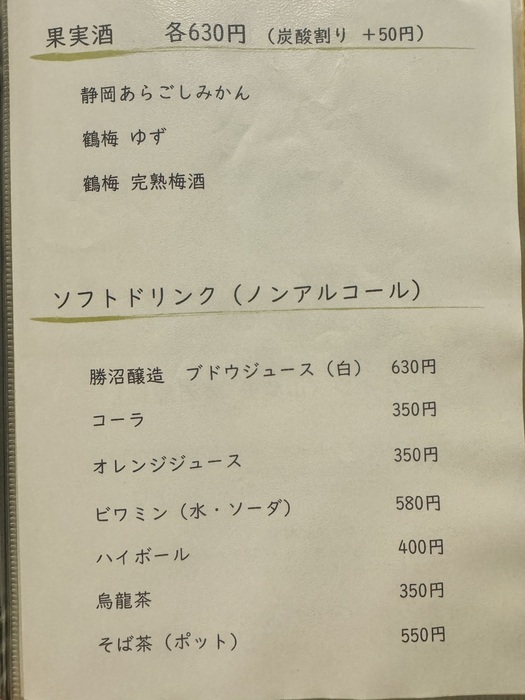 果実酒　各630円 （炭酸割り ＋50円）
静岡あらごしみかん
鶴梅 ゆず
鶴梅 完熟梅酒
ソフトドリンク（ノンアルコール）
勝沼醸造　ブドウジュース（白）　630円
コーラ　350円
オレンジジュース　350円
ビワミン（水・ソーダ）　580円
ハイボール　400円
烏龍茶　350円
そば茶（ポット）　550円